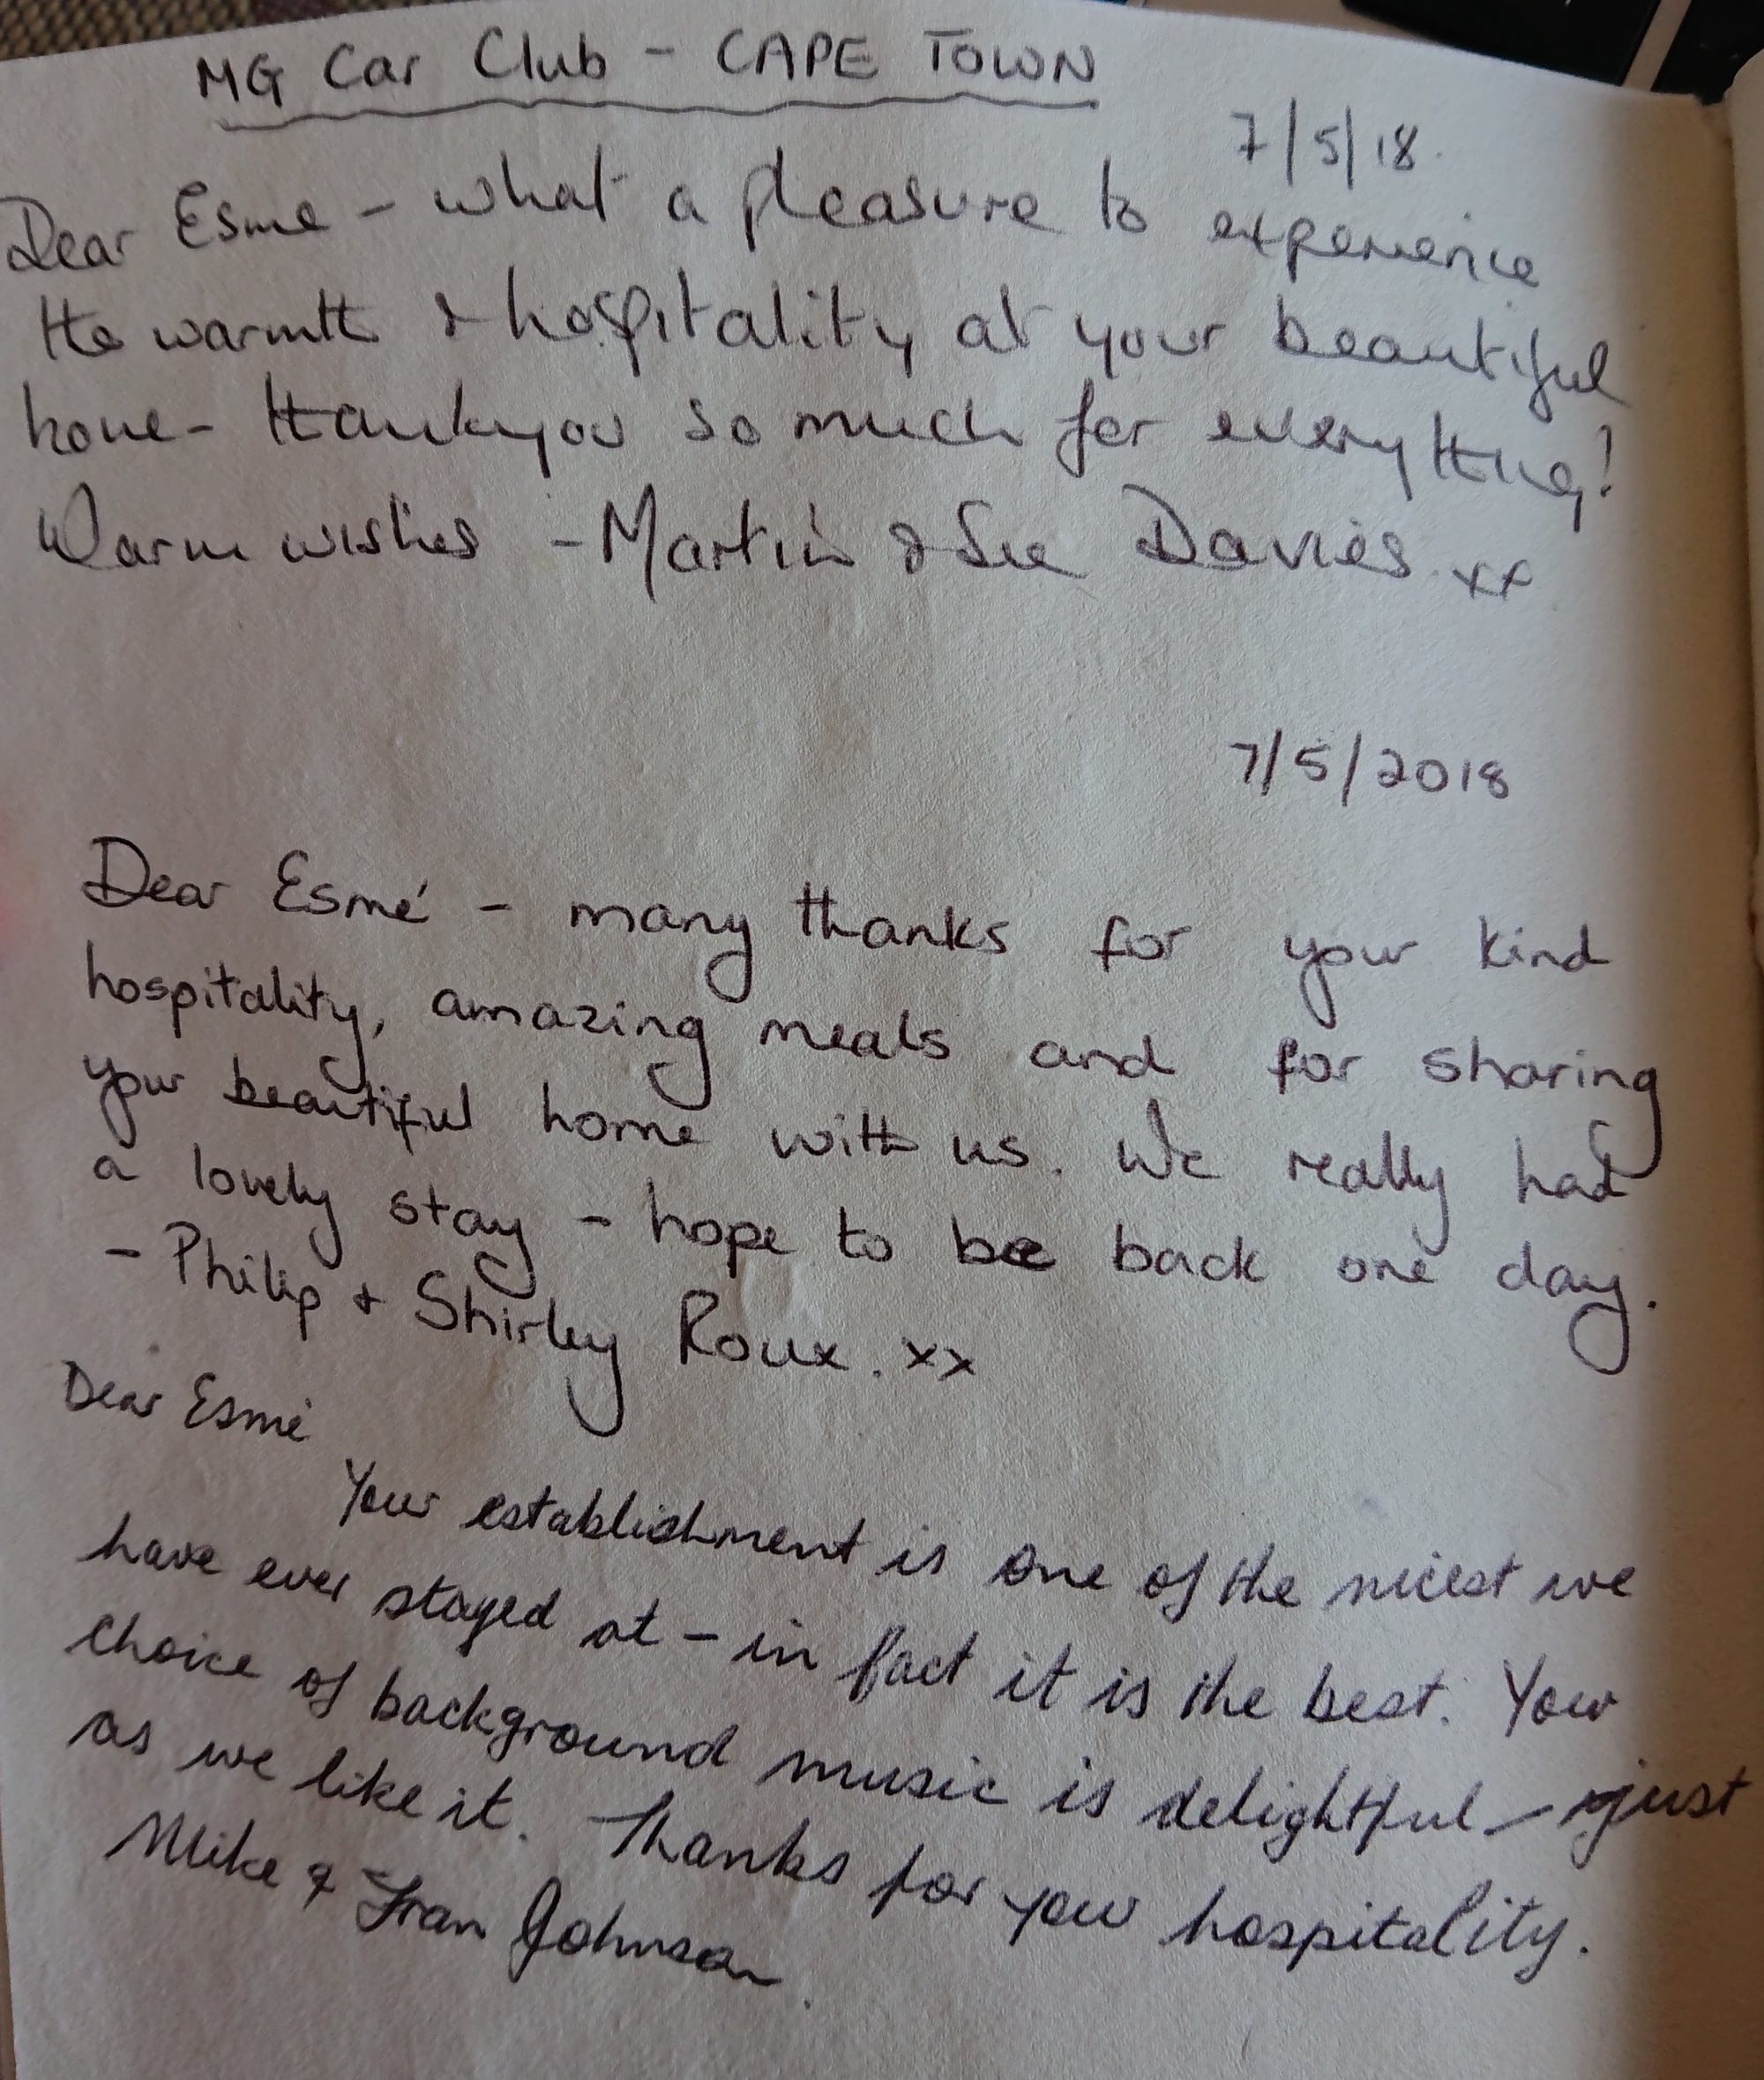 MG Car Club - CAPE TOWN
7/5/18.
Dear Esme - what a pleasure to experience
the warmth & hospitality at your beautiful
home - thankyou so much for everything!
Warm wishes - Martin & Sue Davies xx
7/5/2018
Dear Esmé - many thanks for your kind
hospitality, amazing meals and for sharing
your beautiful home with us. We really had
a lovely stay - hope to be back one day.
- Philip + Shirley Roux. xx
Dear Esmé
Your establishment is one of the nicest we
have ever stayed at - in fact it is the best. Your
choice of background music is delightful - just
as we like it. Thanks for your hospitality.
Mike & Fran Johnson.